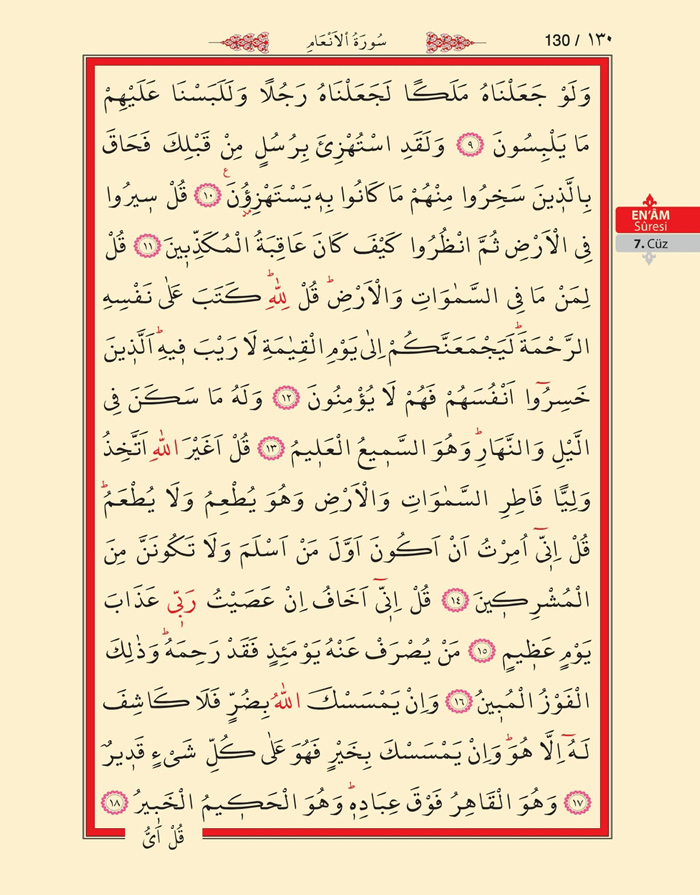 130 / ١٣٠
سُورَةُ الْاَنْعَامِ
وَلَوْ جَعَلْنَاهُ مَلَكًا لَجَعَلْنَاهُ رَجُلًا وَلَلَبَسْنَا عَلَيْهِمْ
مَا يَلْبِسُونَ ﴿٩﴾ وَلَقَدِ اسْتُهْزِئَ بِرُسُلٍ مِنْ قَبْلِكَ فَحَاقَ
بِالَّذ۪ينَ سَخِرُوا مِنْهُمْ مَا كَانُوا بِه۪ يَسْتَهْزِؤُ۫نَ ع ﴿١٠﴾ قُلْ س۪يرُوا
فِي الْاَرْضِ ثُمَّ انْظُرُوا كَيْفَ كَانَ عَاقِبَةُ الْمُكَذِّب۪ينَ ﴿١١﴾ قُلْ
لِمَنْ مَا فِي السَّمٰوَاتِ وَالْاَرْضِۜ قُلْ لِلّٰهِۜ كَتَبَ عَلٰى نَفْسِهِ
الرَّحْمَةَۜ لَيَجْمَعَنَّكُمْ اِلٰى يَوْمِ الْقِيٰمَةِ لَا رَيْبَ ف۪يهِۜ اَلَّذ۪ينَ
خَسِرُٓوا اَنْفُسَهُمْ فَهُمْ لَا يُؤْمِنُونَ ﴿١٢﴾ وَلَهُ مَا سَكَنَ فِي
الَّيْلِ وَالنَّهَارِۜ وَهُوَ السَّم۪يعُ الْعَل۪يمُ ﴿١٣﴾ قُلْ اَغَيْرَ اللّٰهِ اَتَّخِذُ
وَلِيًّا فَاطِرِ السَّمٰوَاتِ وَالْاَرْضِ وَهُوَ يُطْعِمُ وَلَا يُطْعَمُۜ
قُلْ اِنّ۪ٓي اُمِرْتُ اَنْ اَكُونَ اَوَّلَ مَنْ اَسْلَمَ وَلَا تَكُونَنَّ مِنَ
الْمُشْرِك۪ينَ ﴿١٤﴾ قُلْ اِنّ۪ٓي اَخَافُ اِنْ عَصَيْتُ رَبّ۪ي عَذَابَ
يَوْمٍ عَظ۪يمٍ ﴿١٥﴾ مَنْ يُصْرَفْ عَنْهُ يَوْمَئِذٍ فَقَدْ رَحِمَهُۜ وَذٰلِكَ
الْفَوْزُ الْمُب۪ينُ ﴿١٦﴾ وَاِنْ يَمْسَسْكَ اللّٰهُ بِضُرٍّ فَلَا كَاشِفَ
لَهُٓ اِلَّا هُوَۜ وَاِنْ يَمْسَسْكَ بِخَيْرٍ فَهُوَ عَلٰى كُلِّ شَيْءٍ قَد۪يرٌ
﴿١٧﴾ وَهُوَ الْقَاهِرُ فَوْقَ عِبَادِه۪ۜ وَهُوَ الْحَك۪يمُ الْخَب۪يرُ ﴿١٨﴾
قُلْ اَيُّ
EN'ÂM
Sûresi
7. Cüz